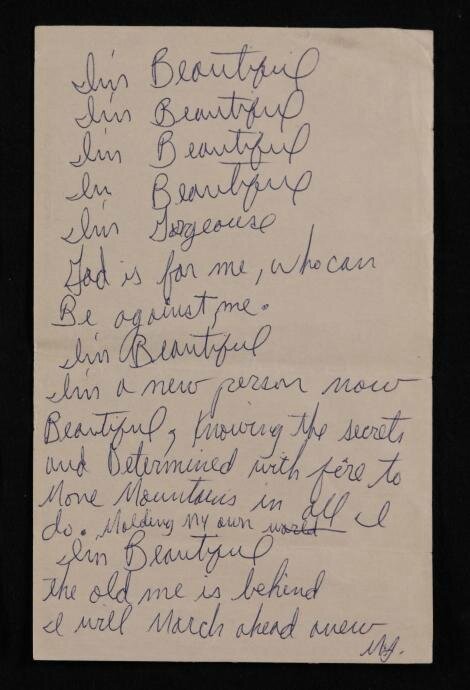 I'm Beautiful
I'm Beautiful
I'm Beautiful
Im Beautiful
I'm Gorgeouse
God is for me, who can
Be against me.
I'm Beautiful
I'm a new person now
Beautiful, knowing the secrets
and Determined with fire to
Move Mountains in all I
do. Molding My own world
I'm Beautiful
the old me is behind
I will March ahead anew
MJ.